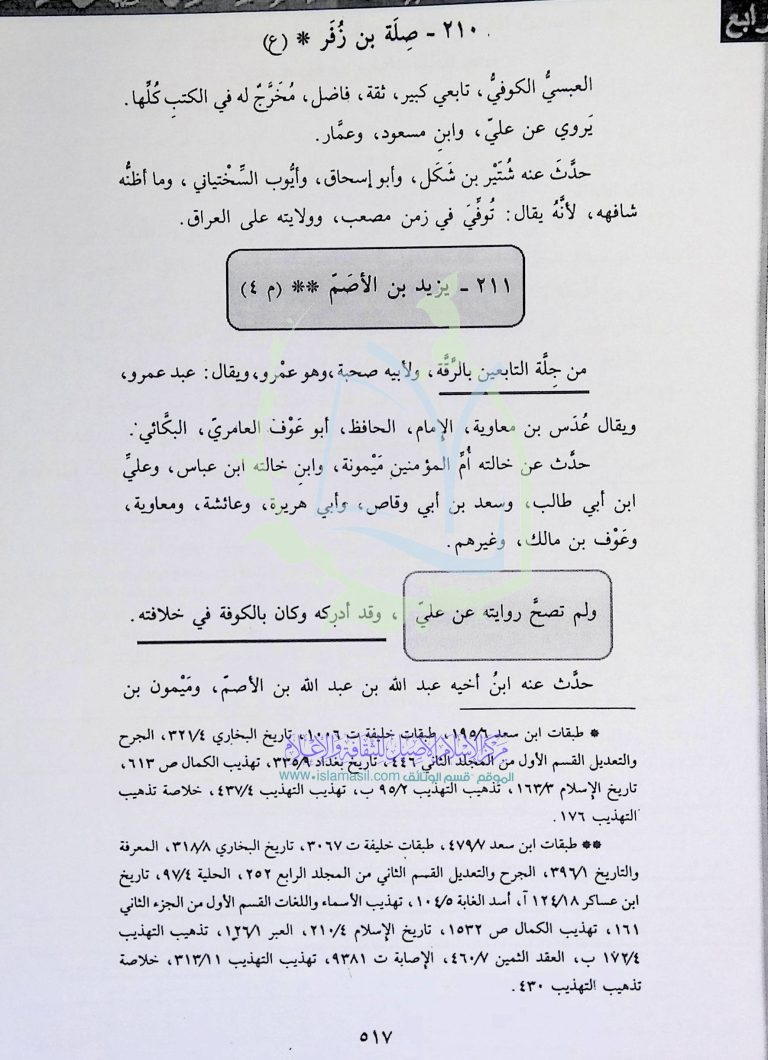 رابع
٢١٠ - صِلَة بن زُفَر * (ع)
العبسيُّ الكوفيُّ، تابعي كبير، ثقة، فاضل، مُخَرَّجٌ له في الكتبِ كُلِّها.
يَروي عن عليّ، وابنِ مسعود، وعمَّار.
حدَّثَ عنه شُتَيْر بن شَكَل، وأبو إسحاق، وأيُّوب السِّخْتياني، وما أظنُّه
شافهه، لأنَّهُ يقال: تُوفِّيَ في زمن مصعب، وولايته على العراق.
٢١١ - يزيد بن الأصَمّ ** (م ٤)
من جِلَّة التابعين بالرَّقَّة، ولأبيه صحبة،وهو عمْرو،ويقال: عبد عمرو،
ويقال عُدَس بن معاوية، الإمام، الحافظ، أبو عَوْف العامريّ، البكَّائي.
حدَّث عن خالته أُمِّ المؤمنين مَيْمونة، وابنِ خالته ابن عباس، وعليِّ
ابن أبي طالب، وسعد بن أبي وقاص، وأبي هريرة، وعائشة، ومعاوية،
وعَوْف بن مالك، وغيرهم.
ولم تصحَّ روايته عن عليّ، وقد أدركه وكان بالكوفة في خلافته.
حدَّث عنه ابنُ أخيه عبد الله بن عبد الله بن الأصمّ، ومَيْمون بن
* طبقات ابن سعد ١٩٥/٦، طبقات خليفة ت ١٠٠٦، تاريخ البخاري ٣٢١/٤، الجرح
والتعديل القسم الأول من المجلد الثاني ٤٤٦، تاريخ بغداد ٣٣٥/٩، تهذيب الكمال ص ٦١٣،
تاريخ الإسلام ١٦٣/٣، تذهيب التهذيب ٩٥/٢ ب، تهذيب التهذيب ٤٣٧/٤، خلاصة تذهيب
التهذيب ١٧٦.
** طبقات ابن سعد ٤٧٩/٧، طبقات خليفة ت ٣٠٦٧، تاريخ البخاري ٣١٨/٨، المعرفة
والتاريخ ٣٩٦/١، الجرح والتعديل القسم الثاني من المجلد الرابع ٢٥٢، الحلية ٩٧/٤، تاريخ
ابن عساكر ١٢٤/١٨ آ، أسد الغابة ١٠٤/٥، تهذيب الأسماء واللغات القسم الأول من الجزء الثاني
١٦١، تهذيب الكمال ص ١٥٣٢، تاريخ الإسلام ٢١٠/٤، العبر ١٢٦/١، تذهيب التهذيب
١٧٢/٤ ب، العقد الثمين ٤٦٠/٧، الإصابة ت ٩٣٨١، تهذيب التهذيب ٣١٣/١١، خلاصة
تذهيب التهذيب ٤٣٠.
مركز الإسلام الأصيل للثقافة والإعلام
الموقع - قسم الوثائق www.islamasil.com
٥١٧